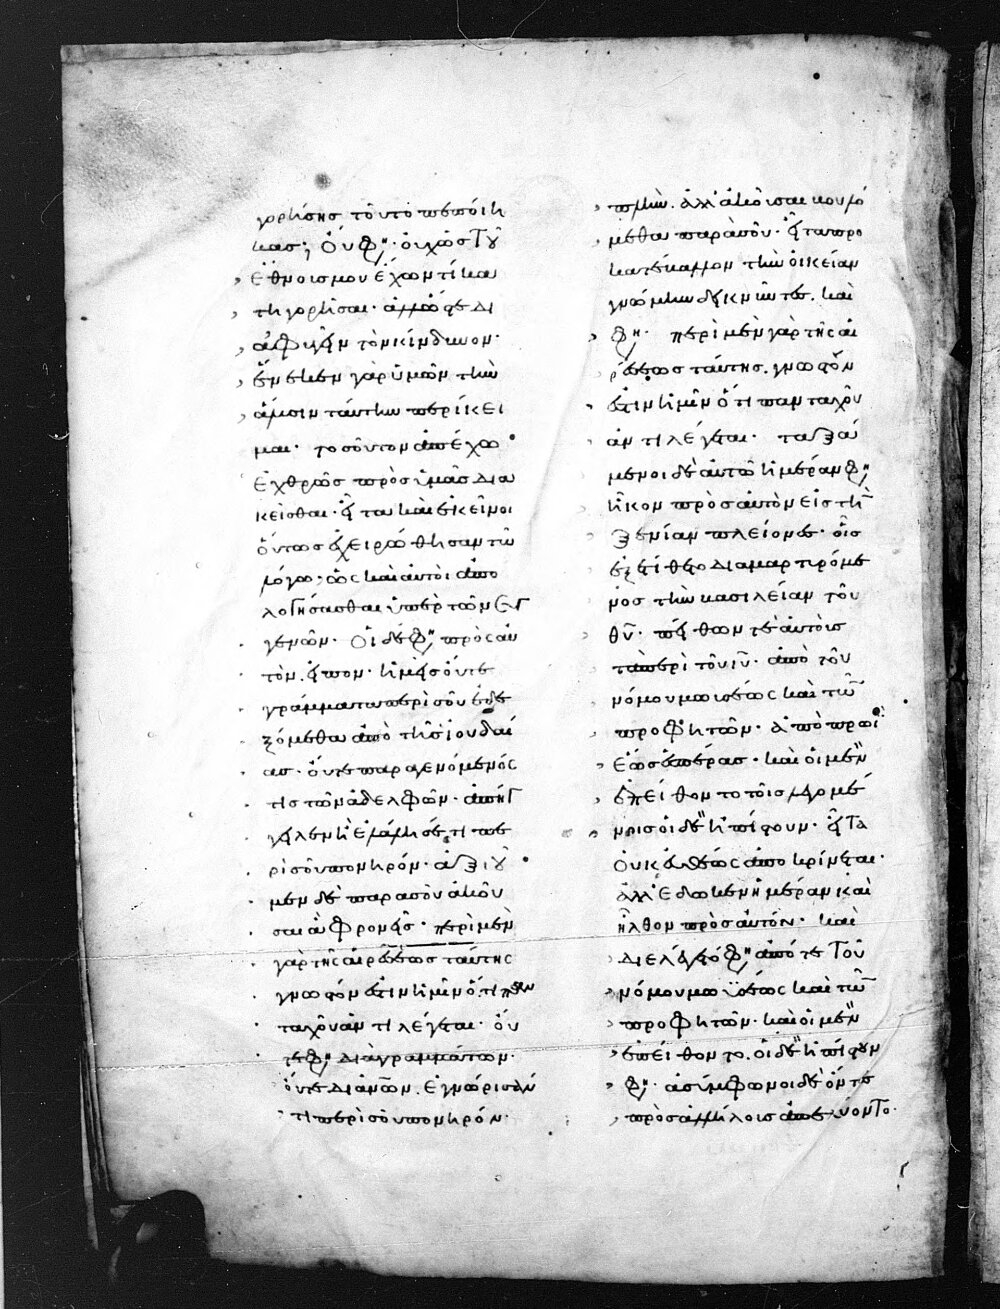 γορήσης τοῦτο πεποίη
κας; Οὐ φη· οὐχ ὡς τοῦ
ἔθνους μου ἔχων τί κα
τηγορῆσαι· ἀλλ' ὥστε δι
αφυγεῖν τὸν κίνδυνον·
ἕνεκεν γὰρ ὑμῶν τὴν
ἅλυσιν ταύτην περίκει
μαι· τοσοῦτον ἀπέχω
ἐχθρῶς πρὸς ὑμᾶς δια
κεῖσθαι· εἶτα καὶ ἐκεῖνοι
οὕτως ἐχειρώθησαν τῷ
λόγῳ; ὡς καὶ αὐτοὶ ἀπο
λογήσασθαι ὑπὲρ τῶν συγ
γενῶν· Οἱ δὲ φη πρὸς αὐ
τὸν εἶπον· ἡμεῖς οὔτε
γράμματα περὶ σοῦ ἐδε
ξάμεθα ἀπὸ τῆς ἰουδαί
ας· οὔτε παραγενόμενός
τις τῶν ἀδελφῶν· ἀπήγ
γειλεν ἢ ἐλάλησέ τι πε
ρὶ σοῦ πονηρόν· ἀξιοῦ
μεν δὲ παρα σοῦ ἀκοῦ
σαι ἃ φρονεῖς· περὶ μὲν
γὰρ τῆς αἱρέσεως ταύτης
γνωστόν ἐστιν ἡμῖν ὅτι παν
ταχοῦ ἀντιλέγεται· οὔ
τε φη διὰ γραμμάτων·
οὔτε δι' ἀνων. ἐγνώρισάν
τι περὶ σοῦ πονηρόν·
πλὴν. ἀλλ' ἀκοῦσαι βουλό
μεθα παρὰ σοῦ· εἶτα προ
κατέβαλλον τὴν οἰκείαν
γνώμην δεικνῦντες. καὶ
φη· περὶ μὲν γὰρ τῆς αἱ
ρέσεως ταύτης. γνωστόν
ἐστιν ἡμῖν ὅτι πανταχοῦ
ἀντιλέγεται· ταξά
μενοι δὲ αὐτῷ ἡμέραν φη
ἧκον πρὸς αὐτὸν εἰς τὴν
ξενίαν πλείονες· οἷς
ἐξετίθετο διαμαρτυρόμε
νος τὴν βασιλείαν τοῦ
θυ· πείθων τε αὐτοὺς
τὰ περὶ τοῦ ιυ· ἀπὸ τοῦ
νόμου μωυσέως καὶ τῶν
προφητῶν· ἀπὸ πρωῒ
ἕως ἑσπέρας· καὶ οἱ μὲν
ἐπείθοντο τοῖς λεγομέ
νοις οἱ δὲ ἠπίστουν· εἶτα
οὐκ εὐθέως ἀποκρίνεται·
ἀλλ' ἔδωκεν ἡμέραν καὶ
ἦλθον πρὸς αὐτόν· καὶ
διελέγετό φη ἀπό τε τοῦ
νόμου μωϋσέως καὶ τῶν
προφητῶν· καὶ οἱ μὲν
ἐπείθοντο. οἱ δὲ ἠπίστουν
φη· ἀσύμφωνοι δὲ ὄντες
πρὸς ἀλλήλους ἀπελύοντο·